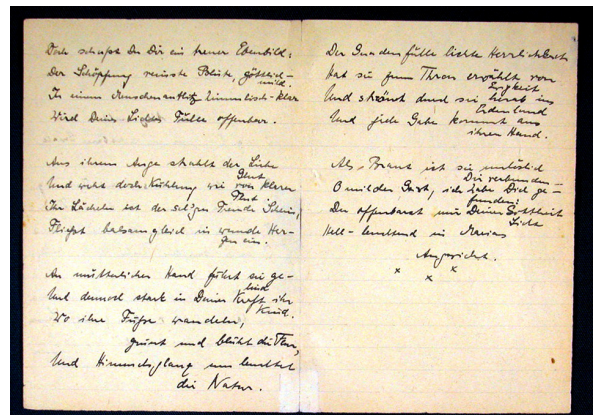 Doch schufst Du Dir ein treues Ebenbild:
Der Schöpfung reinste Blüte, göttlich-
mild.
In einem Menschenantlitz himmlisch-klar
Wird Deines Lichtes Fülle offenbar.
Aus ihrem Auge strahlt der Liebe
Glut
Und weht doch Kühlung wie von klarer
Flut
Ihr Lächeln ist der sel'gen Freude Schein,
Fließt balsamgleich in wunde Her-
zen ein.
An mütterlicher Hand führt sie ge-
lind
Und dennoch stark in Deiner Kraft ihr
Kind.
Wo ihre Füße wandeln,
grünt und blüht die Flur,
Und Himmelsglanz umleuchtet
die Natur.
Der Gnadenfülle lichte Herrlichkeit
Hat sie zum Thron erwählt von
Ewigkeit
Und strömt durch sie herab ins
Erdenland
Und jede Gabe kommt aus
ihrer Hand.
Als Braut ist sie unlöslich
Dir verbunden –
O milder Geist, ich habe Dich ge-
funden:
Du offenbarst mir Deiner Gottheit
Licht
Hell-leuchtend in Mariens
Angesicht.